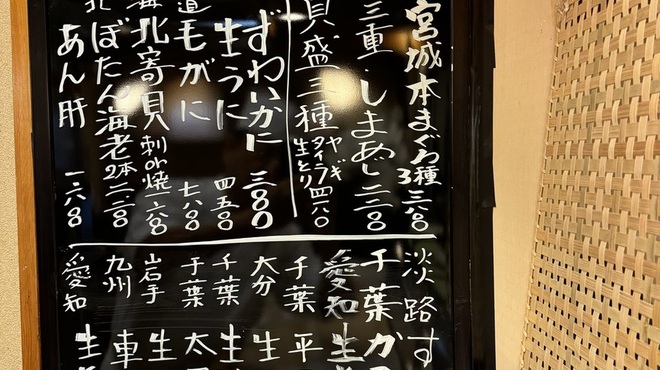 宮城本まぐろ3種 三二〇〇
三重・しまあじ 二二〇〇
貝盛三種 ヤギ タイラ 生とり 四一八〇
ずわいかに 三八〇
生うに 四五〇〇
道毛がに 七八〇〇
北寄貝 刺or焼 一六八〇
ぼたん海老 2本 二二〇〇
あん肝 一六八〇
淡路す
千葉カ
愛知生
千葉平
大分生
千葉生
千葉太
岩手生
九州車
愛知生